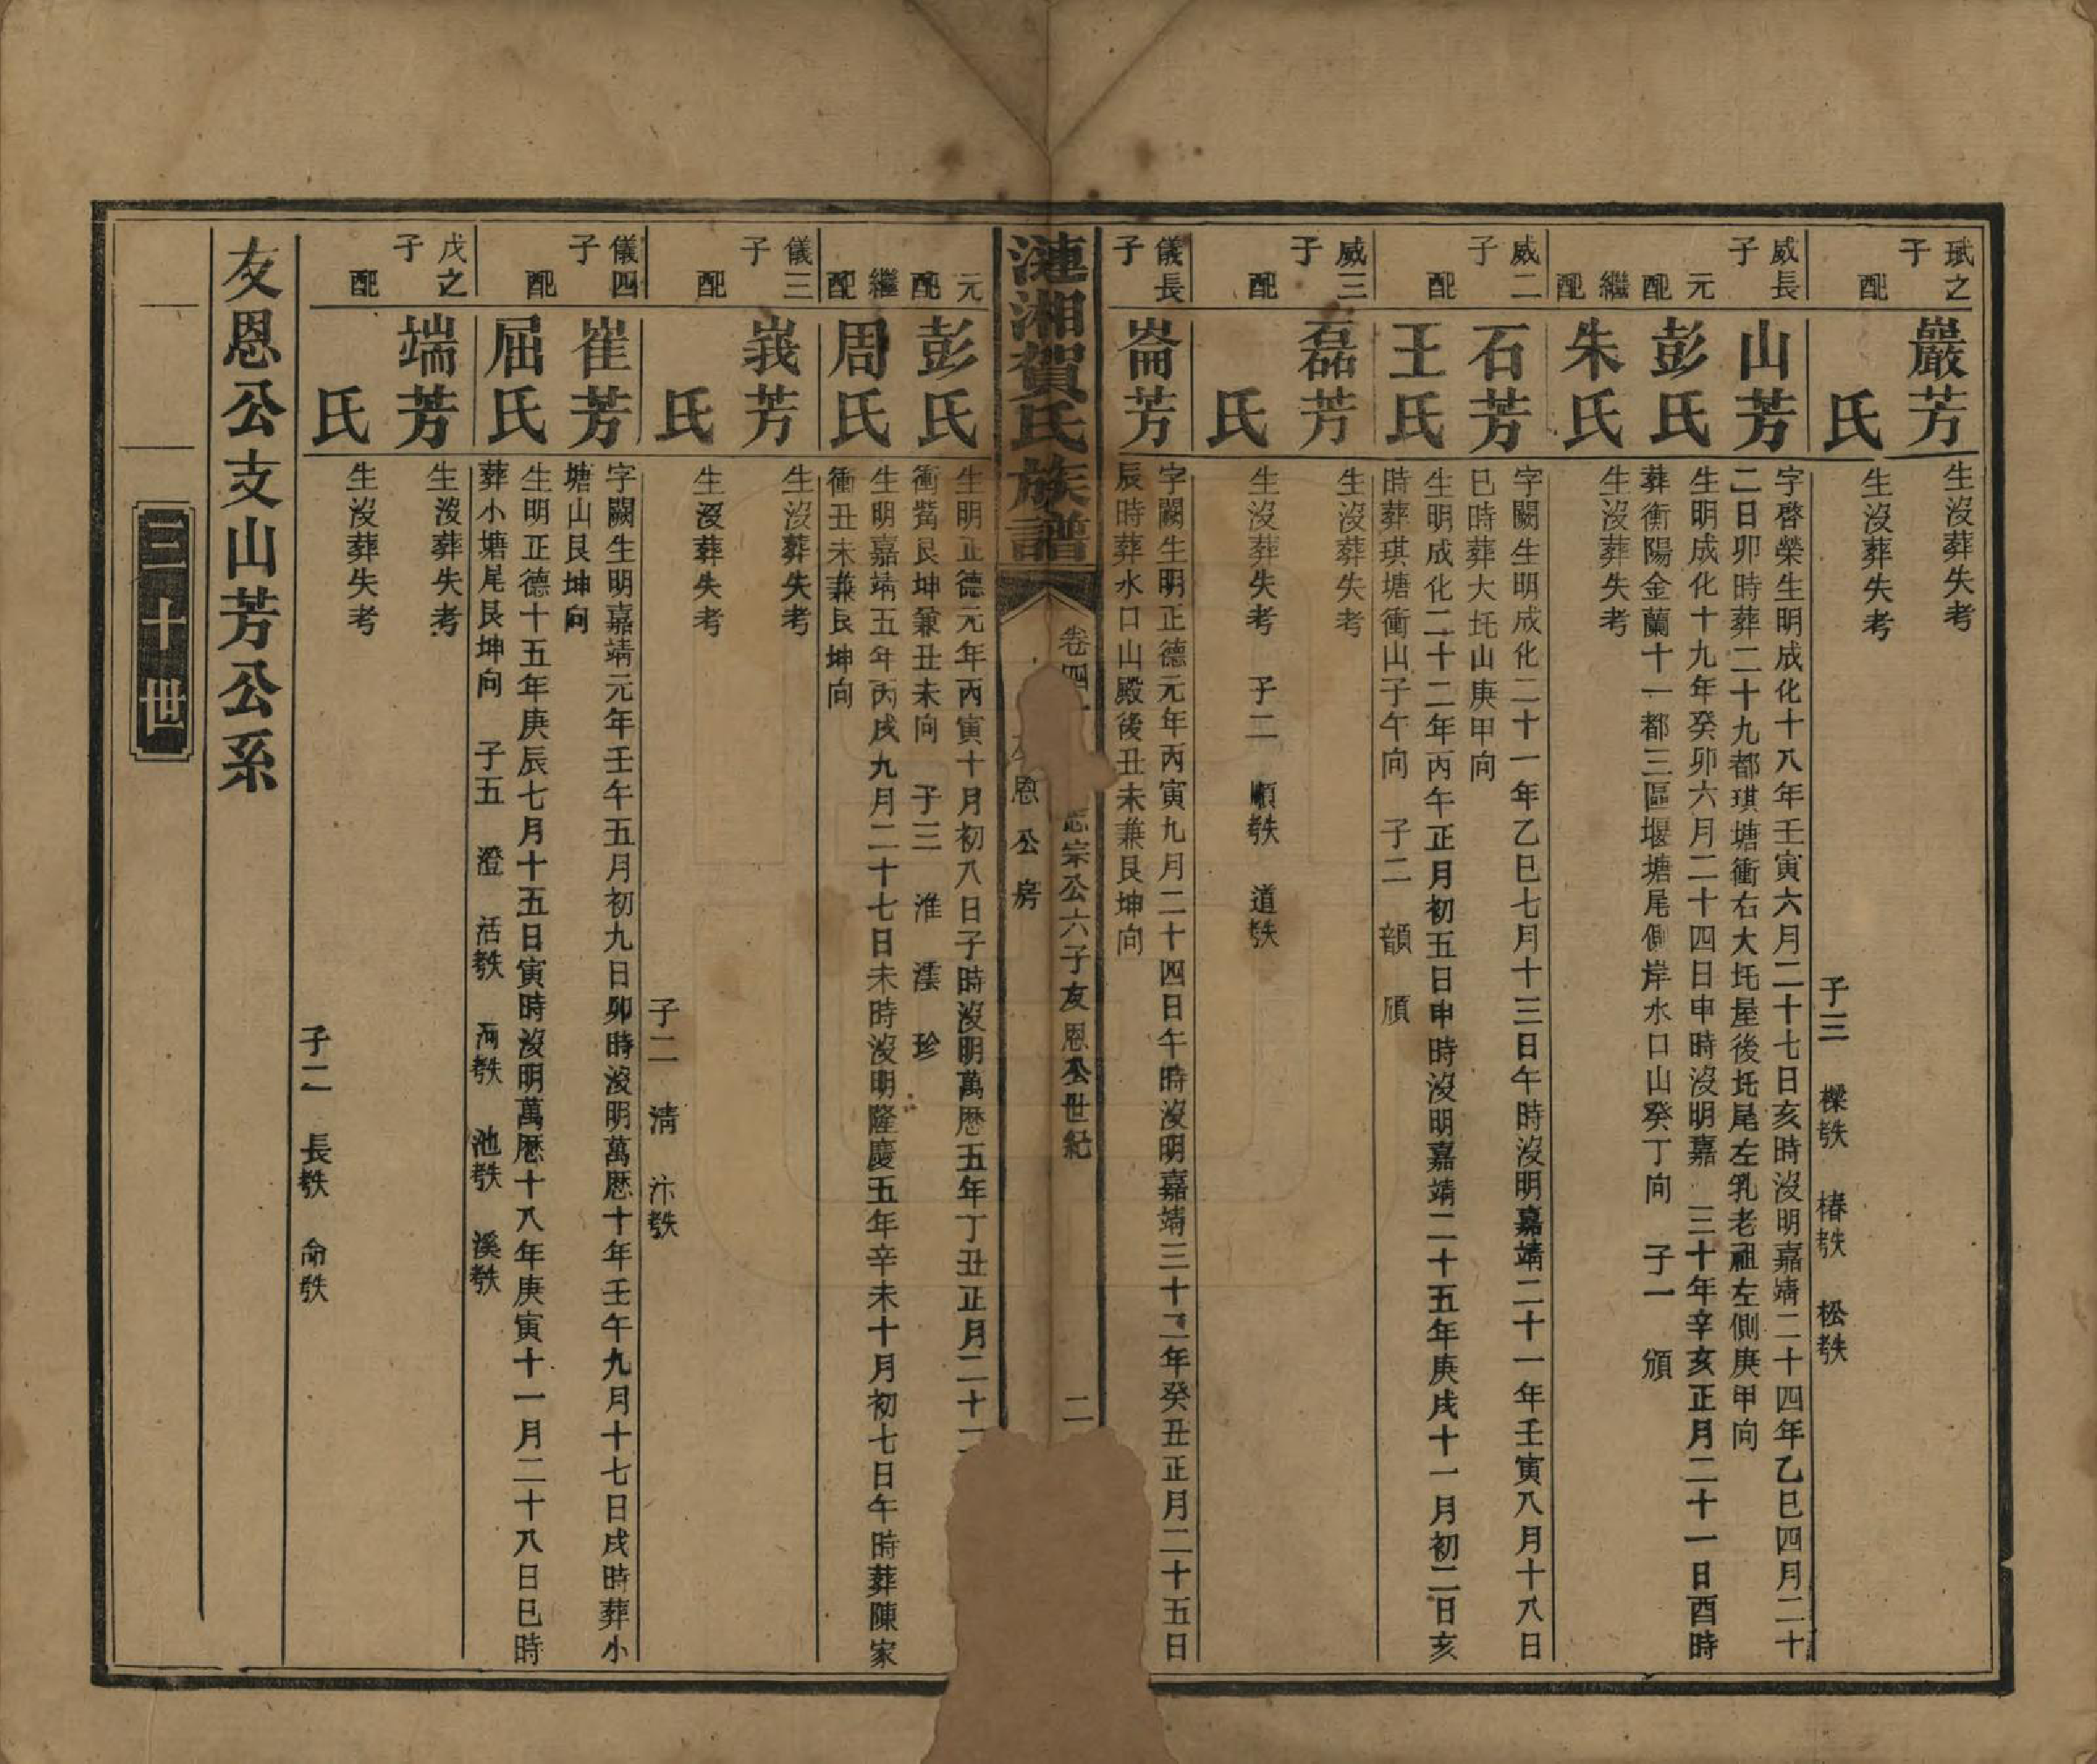 珷之子
巖芳
生沒葬失考
配
氏
生沒葬失考
子三 樑軼 椿軼 松軼
威長子
山芳
字啓榮生明成化十八年壬寅六月二十七日亥時沒明嘉靖二十四年乙巳四月二十
二日卯時葬二十九都琪塘衝右大圫屋後圫尾左乳老祖左側庚甲向
元配
彭氏
生明成化十九年癸卯六月二十四日申時沒明嘉 三十年辛亥正月二十一日酉時
葬衡陽金蘭十一都三區堰塘尾側岸水口山癸丁向 子一 頒
繼配
朱氏
生沒葬失考
威二子
石芳
字闕生明成化二十一年乙巳七月十三日午時沒明嘉靖二十一年壬寅八月十八日
巳時葬大圫山庚甲向
配
王氏
生明成化二十二年丙午正月初五日申時沒明嘉靖二十五年庚戌十一月初二日亥
時葬琪塘衝山子午向 子二 韻 頎
威三子
磊芳
生沒葬失考
配
氏
生沒葬失考 子二 順軼 道軼
儀長子
崙芳
字闕生明正德元年丙寅九月二十四日午時沒明嘉靖三十二年癸丑正月二十五日
辰時葬水口山殿後丑未兼艮坤向
漣湘賀氏族譜
卷四
志宗公六子友恩公世紀
二
恩公房
元配
彭氏
生明正德元年丙寅十月初八日子時沒明萬歷五年丁丑正月二十
衝觜艮坤兼丑未向 子三 淮 澐 珍
繼配
周氏
生明嘉靖五年丙戌九月二十七日未時沒明隆慶五年辛未十月初七日午時葬陳家
衝丑未兼艮坤向
儀三子
峩芳
生沒葬失考
配
氏
生沒葬失考
子二 淸 汴軼
儀四子
崔芳
字闕生明嘉靖元年壬午五月初九日卯時沒明萬歷十年壬午九月十七日戌時葬小
塘山艮坤向
配
屈氏
生明正德十五年庚辰七月十五日寅時沒明萬歷十八年庚寅十一月二十八日巳時
葬小塘尾艮坤向 子五 澄 活軼 河軼 池軼 溪軼
戊之子
端芳
生沒葬失考
配
氏
生沒葬失考
子二 長軼 命軼
友恩公支山芳公系
三十世